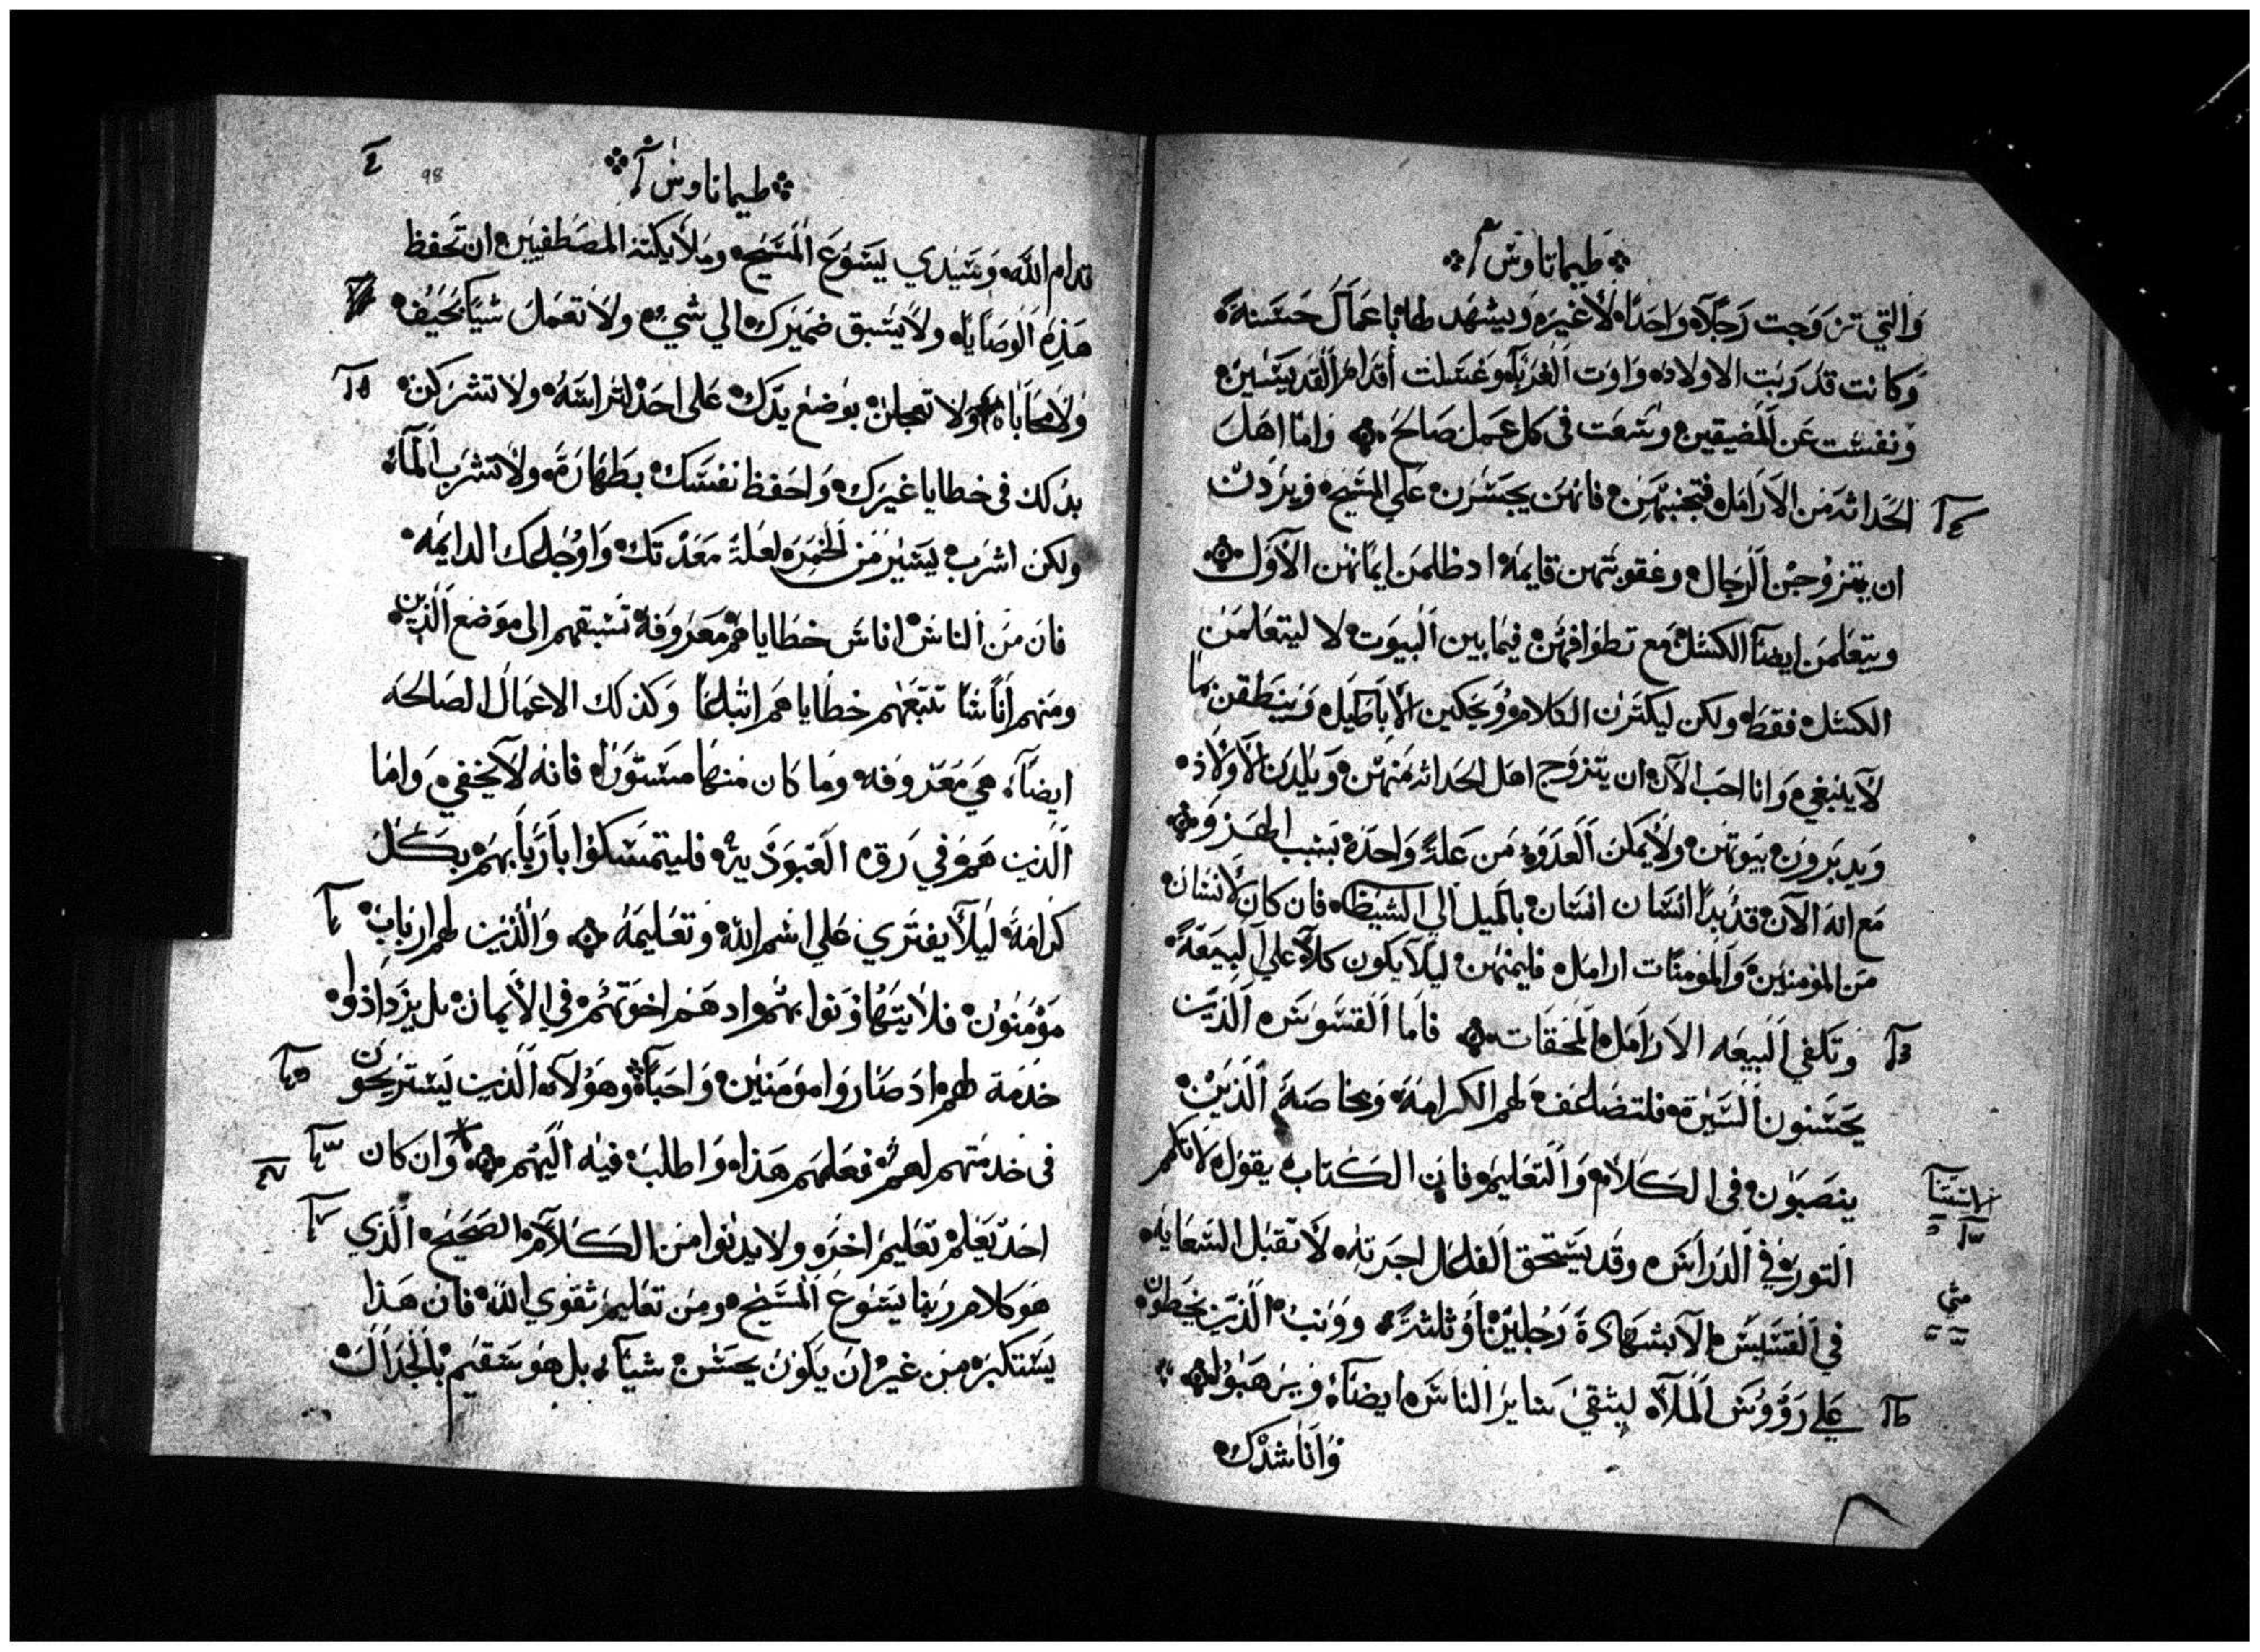 طيماتاوس آ
والتي تزوجت رجلاً واحداً لا غيره ويشهد لها باعمال حسنة
وكانت قد ربت الاولاد واوت الغرباء وغسلت أقدام القديسين
ونفست عن المضيقين وسعت في كل عمل صالح واما اهل
الحداثه من الارامل فتجنبهن فانهن يجسرن على المسيح ويردن
ان يتزوجن الرجال وعقوبتهن قايمه اد ظلمن ايمانهن الاول
ويتعلمن ايضاً الكسل مع تطوافهن فيما بين البيوت لا ليتعلمن
الكسل فقط ولكن ليكثرن الكلام ويحكين الاباطيل وينطقن بما
لا ينبغي وانا احب الآن ان يتزوج اهل الحداثه منهن ويلدن الاولاد
ويدبرون بيوتهن ولا يمكن العدو من علة واحدة بسبب الهزو
مع انه الآن قد بدأ انسان انسان بالميل الى الشيطا فان كان لانسان
من المؤمنين والمومنات ارامل فليمنهن ليلا يكون كلاً على البيعة
وتكفي البيعه الارامل المحقات فاما القسوس الذين
يحسنون السيرة فلتضاعف لهم الكرامة وبخاصة الذين
ينصبون في الكلام والتعليم فان الكتاب يقول لاتكم
التور في الدراس وقد يستحق الفاعل اجرته لا تقبل السعايه
في القسيس الا بشهادة رجلين او ثلثة ووبن الذين يخطون
على رؤوس الملأ ليتقي ساير الناس ايضاً ويرهبوا
واناشدك
طيماتاوس آ
98
قدام الله وسيدي يسوع المسيح وملايكته المصطفين ان تحفظ
هذه الوصايا ولا يسبق ضميرك الي شي ولا تعمل شيا بحيف
ولا محاباه ولا تعجلن بوضع يدك على احد لتراسه ولا تشركن
بدلك في خطايا غيرك واحفظ نفسك بطهارة ولا تشرب الماء
ولكن اشرب يسير من الخمره لعلة معدتك واوجاعك الدايمه
فان من الناس اناس خطاياهم معروفة تسبقهم الى موضع الدين
ومنهم اناسا تتبعهم خطاياهم اتباعا وكذلك الاعمال الصالحه
ايضاً هي معروفه وما كان منها مستورا فانه لا يخفي واما
الذين هم في رق العبوديه فليتمسكوا باربابهم بكل
كرامة ليلا يفتري علي اسم الله وتعليمه والذين لهم ارباب
مؤمنون فلا يتهاونوا بهم اد هم اخوتهم في الأيمان بل يزدادوا
خدمة لهم اد صاروا مومنين واحباً وهولاء الذين يستريحون
في خدمتهم لهم فعلمهم هذا واطلب فيه اليهم وان كان
احد يعلم تعليم اخر ولا يدنوا من الكلام الصحيح الذي
هو كلام ربنا يسوع المسيح ومن تعليم تقوي الله فان هذا
يستكبر من غير ان يكون يحسن شيآ بل هو سقيم بالجدال